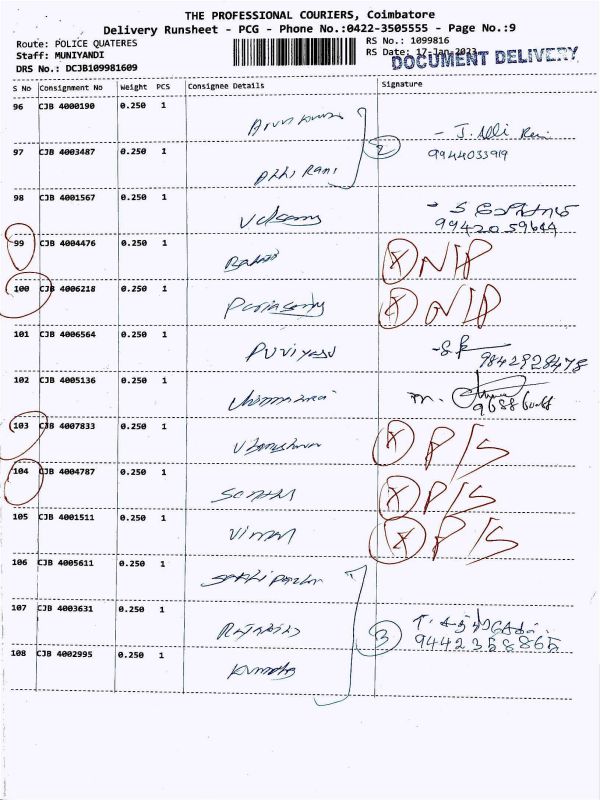 THE PROFESSIONAL COURIERS, Coimbatore
Delivery Runsheet - PCG - Phone No.:0422-3505555 - Page No.:9
Route: POLICE QUATERES
RS No.: 1099816
Staff: MUNIYANDI
RS Date: 17-Jan-2023
DOCUMENT DELIVERY
DRS No.: DCJB109981609
S No Consignment No Weight PCS Consignee Details Signature
96 CJB 4000190 0.250 1 Arun kumar
2 - J. Alli Rani
9944033919
97 CJB 4003487 0.250 1 Alli Rani
98 CJB 4001567 0.250 1
9942059644
99 CJB 4004476 0.250 1 X N/P
100 CJB 4006218 0.250 1 Periasamy X N/P
101 CJB 4006564 0.250 1
9842928478
102 CJB 4005136 0.250 1 m.
103 CJB 4007833 0.250 1 X P/S
104 CJB 4004787 0.250 1 X P/S
105 CJB 4001511 0.250 1 X P/S
106 CJB 4005611 0.250 1
107 CJB 4003631 0.250 1
3
9442358865
108 CJB 4002995 0.250 1